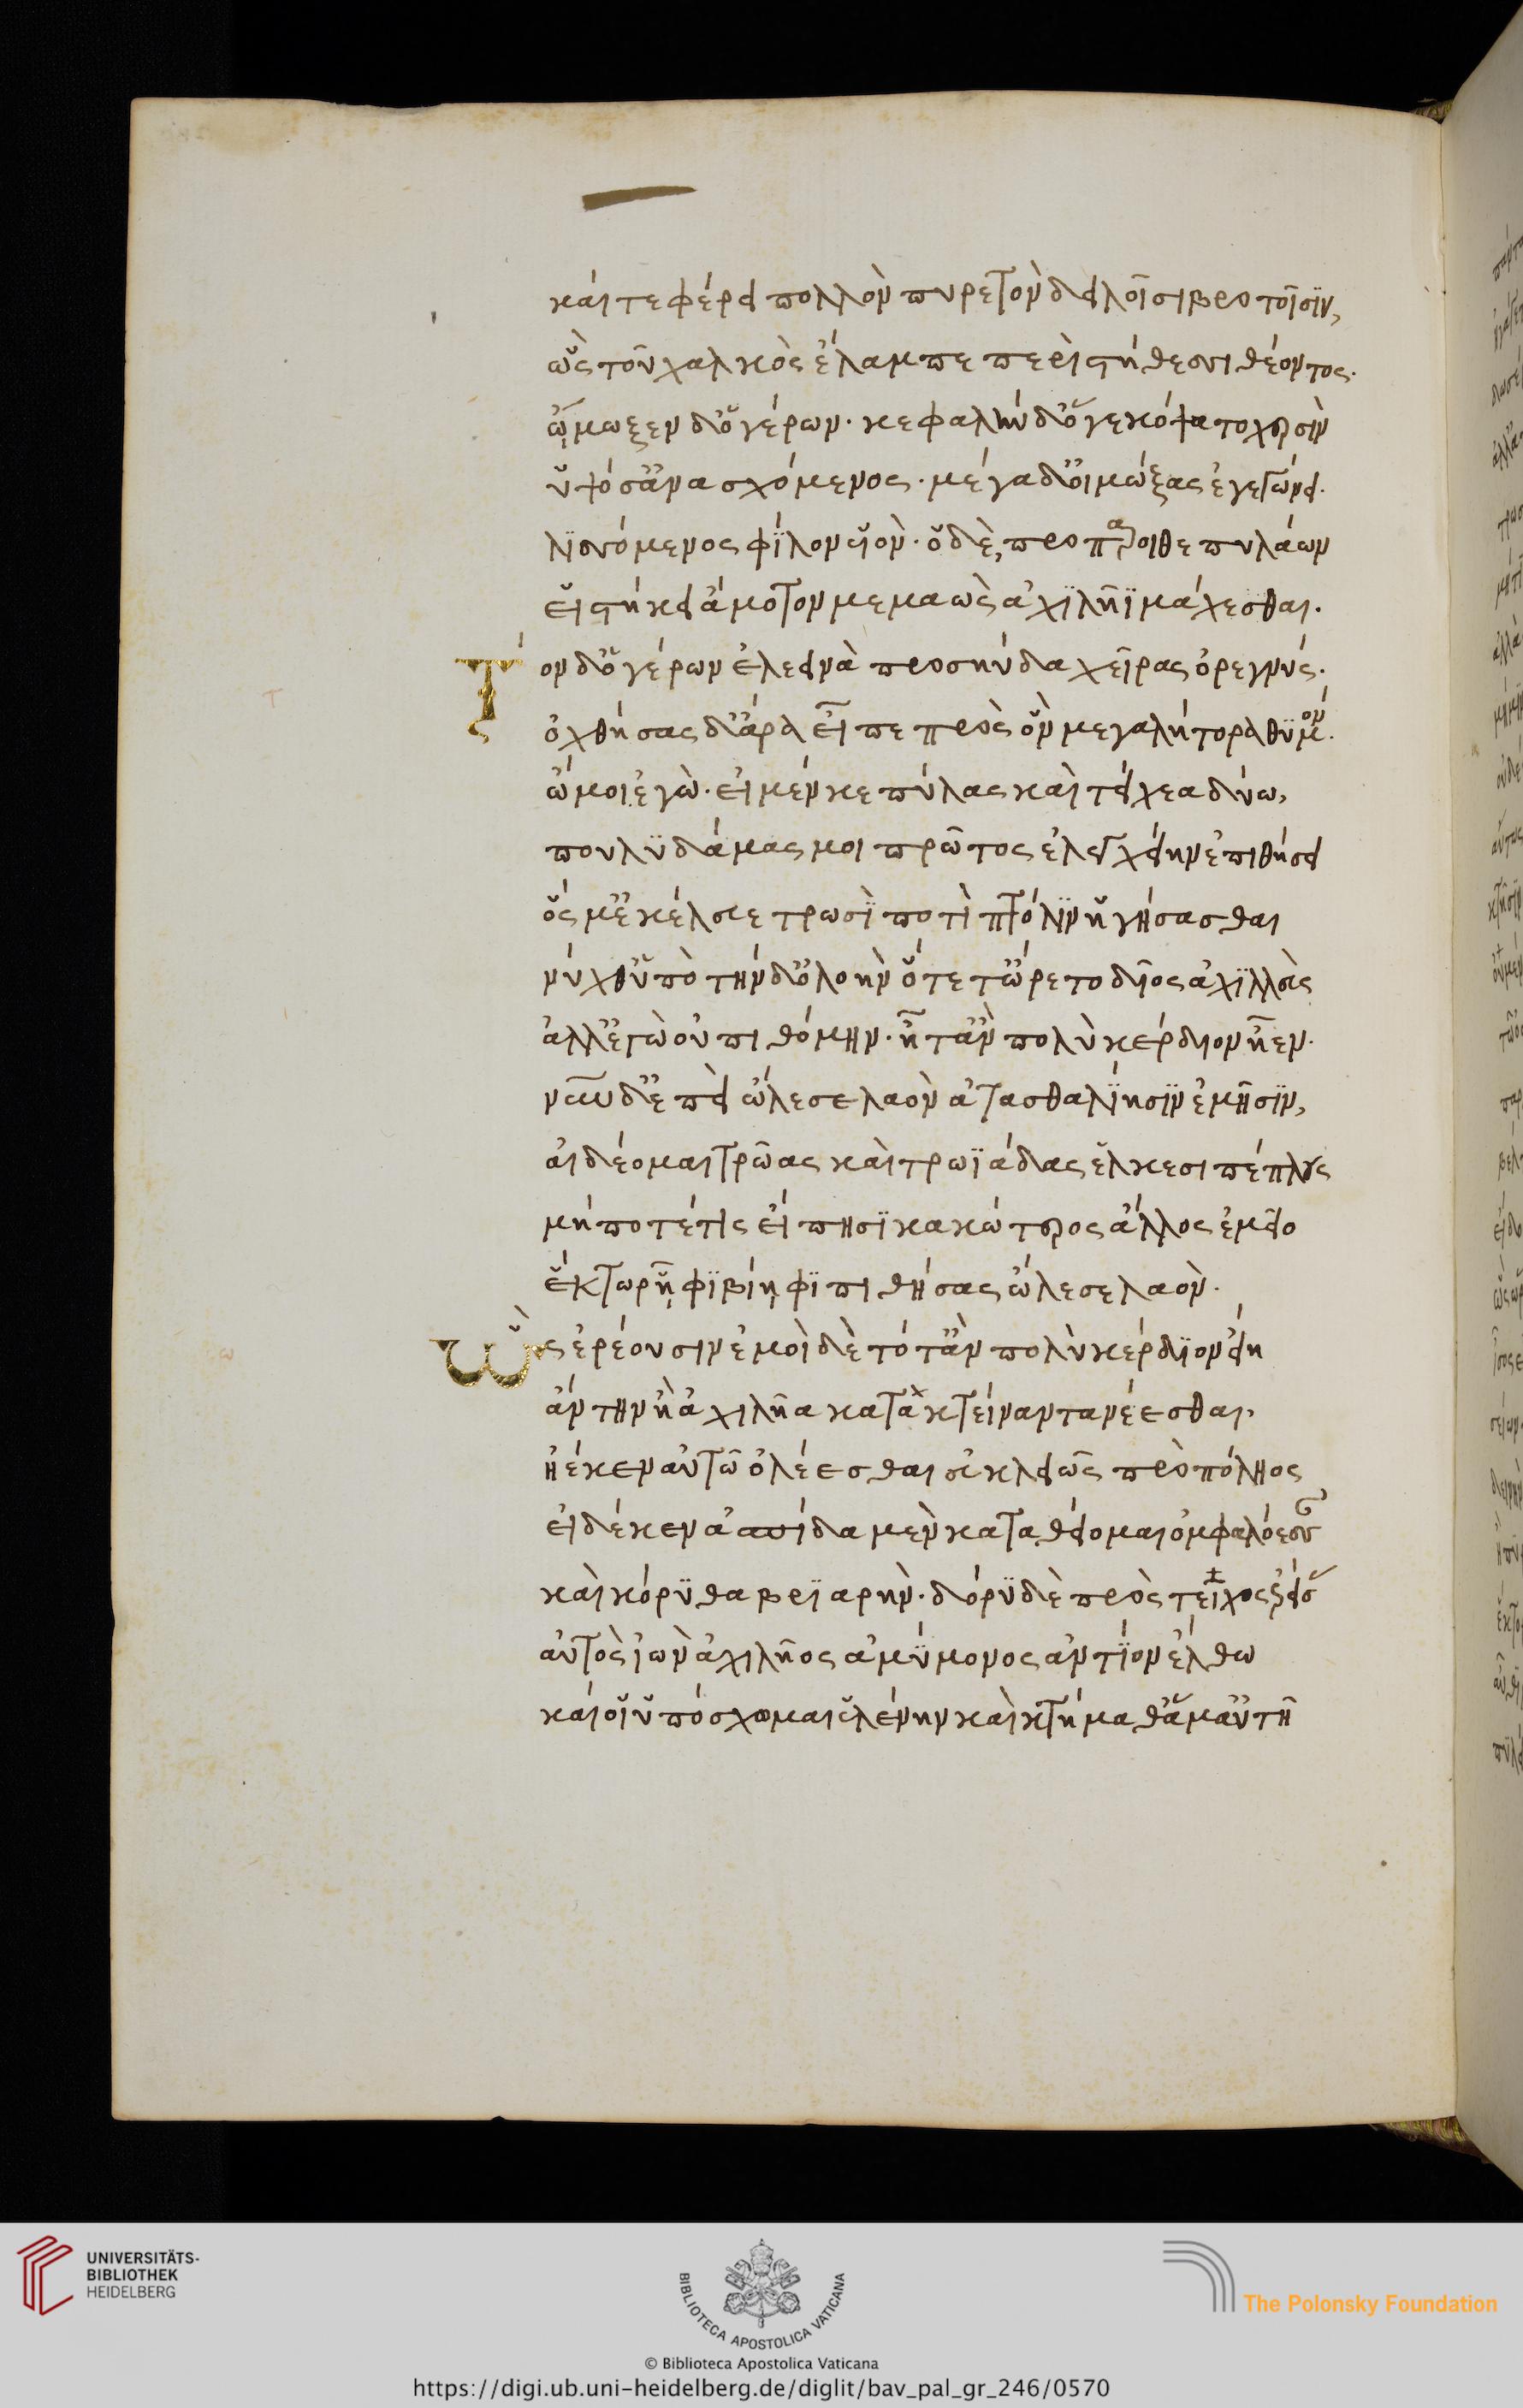 καί τε φέρει πολλὸν πυρετὸν δειλοῖσι βροτοῖσϊν,
ὣς τοῦ χαλκὸς ἔλαμπε περὶ στήθεσσι θέοντος.
ᾤμωξεν δ' ὁ γέρων. κεφαλὴν δ' ὅ γε κόψατο χερσὶν
ὑψόσ' ἀνασχόμενος. μέγα δ' οἰμώξας ἐγεγώνει.
λϊσσόμενος φΐλον υἱὸν. ὁ δὲ, προπάροιθε πυλάων
εἱστήκει ἄμοτον μεμαὼς ἀχϊλῆϊ μάχεσθαι.
Τὸν δ' ὁ γέρων ἐλεεινὰ προσηύδα χεῖρας ὀρεγνύς.
ὀχθήσας δ' ἄρα εἶπε πρὸς ὃν μεγαλήτορα θϋμόν.
ὤμοι ἐγὼ. εἰ μέν κε πύλας καὶ τείχεα δύω,
πουλϋδάμας μοι πρῶτος ἐλεγχείην ἐπιθήσει
ὅς μ' ἐκέλευε τρωσῒ ποτὶ πτόλϊν ἡγήσασθαι
νύχθ' ὑπὸ τήνδ' ὀλοὴν ὅτε τ' ὤρετο δῖος ἀχϊλλεὺς
ἀλλ' ἐγὼ οὐ πιθόμην. ἦ τ' ἂν πολὺ κέρδιον ἦεν.
νῦν δ' ἐπεὶ ὤλεσε λαὸν ἀτασθαλΐησϊν ἐμῇσϊν,
αἰδέομαι τρῶας καὶ τρωϊάδας ἑλκεσιπέπλους
μή ποτέ τὶς εἴπησϊ κακώτερος ἄλλος ἐμεῖο
ἕκτωρ ἧφϊ βίηφϊ πιθήσας ὤλεσε λαὸν.
Ὣς ἐρέουσιν ἐμοὶ δὲ τότ' ἂν πολὺ κέρδϊον εἴη
ἄντην ἢ ἀχιλῆα κατακτείναντα νέεσθαι,
ἠέ κεν αὐτῷ ὀλέεσθαι εὐκλειῶς πρὸ πόληος
εἰ δέ κεν ἀσπίδα μὲν καταθείομαι ὀμφαλόεσσαν
καὶ κόρϋθα βρϊαρὴν. δόρϋ δὲ πρὸς τεῖχος ἐρείσας
αὐτὸς ἰὼν ἀχιλῆος ἀμΰμονος ἀντΐον ἔλθω
καί οἱ ὑπόσχωμαι ἑλένην καὶ κτήμαθ' ἅμ' αὐτῇ
UNIVERSITÄTS-
BIBLIOTHEK
HEIDELBERG
BIBLIOTECA APOSTOLICA VATICANA
The Polonsky Foundation
© Biblioteca Apostolica Vaticana
https://digi.ub.uni-heidelberg.de/diglit/bav_pal_gr_246/0570